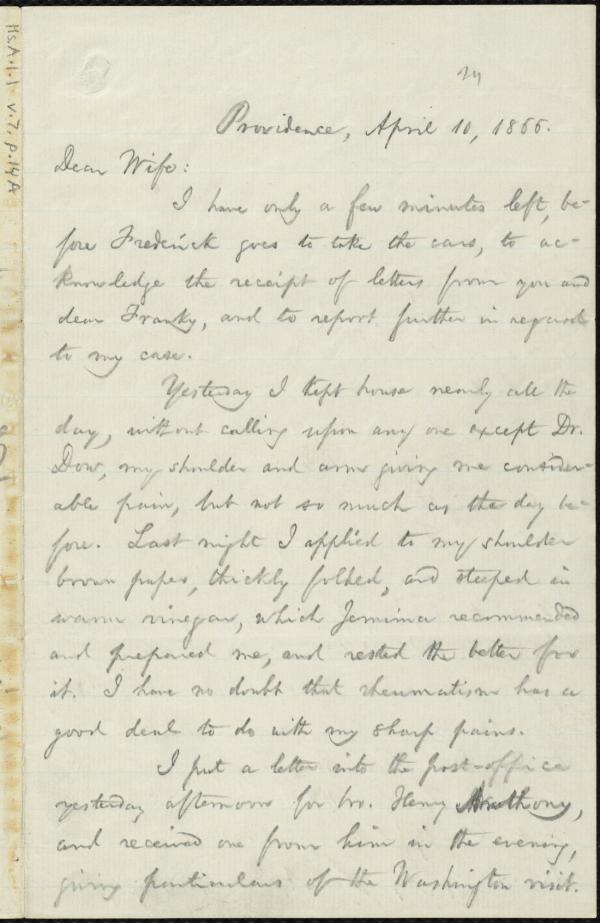 Ms.A.1.1 v.7. p.14A
Providence, April 10, 1866.
Dear Wife:
I have only a few minutes left, be-
fore Frederick goes to take the cars, to ac-
knowledge the receipt of letters from you and
dear Franky, and to report further in regard
to my case.
Yesterday I kept house nearly all the
day, without calling upon any one except Dr.
Dow, my shoulder and arm giving me consider-
able pain, but not so much as the day be-
fore. Last night I applied to my shoulder
brown paper, thickly folded, and steeped in
warm vinegar, which Jemima recommended
and prepared me, and rested the better for
it. I have no doubt that rheumatism has a
good deal to do with my sharp pains.
I put a letter into the post-office
yesterday afternoon for bro. Henry Anthony,
and received one from him in the evening,
giving particulars of the Washington visit.